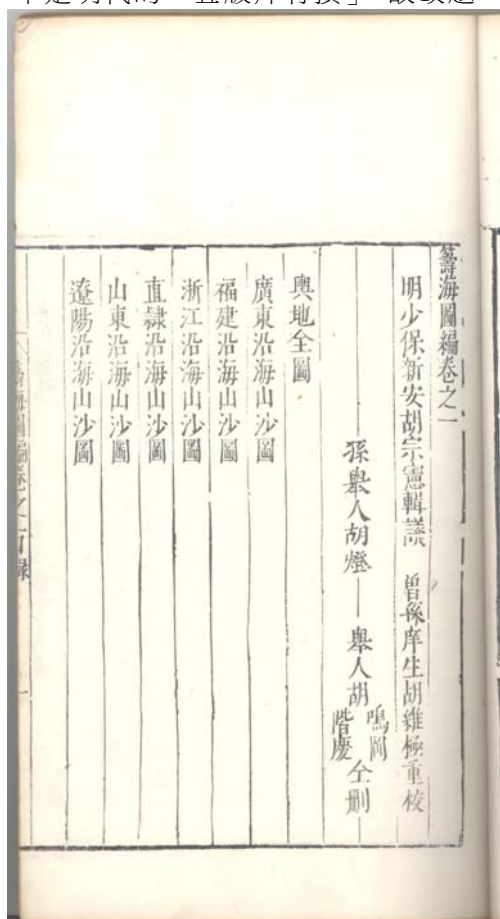 籌海圖編卷之一
明少保新安胡宗憲輯議　曾孫庠生胡維極重校
孫舉人胡燈　舉人胡鳴岡階慶仝刪
輿地全圖
廣東沿海山沙圖
福建沿海山沙圖
浙江沿海山沙圖
直隸沿海山沙圖
山東沿海山沙圖
遼陽沿海山沙圖
籌海圖編卷之一目錄
一